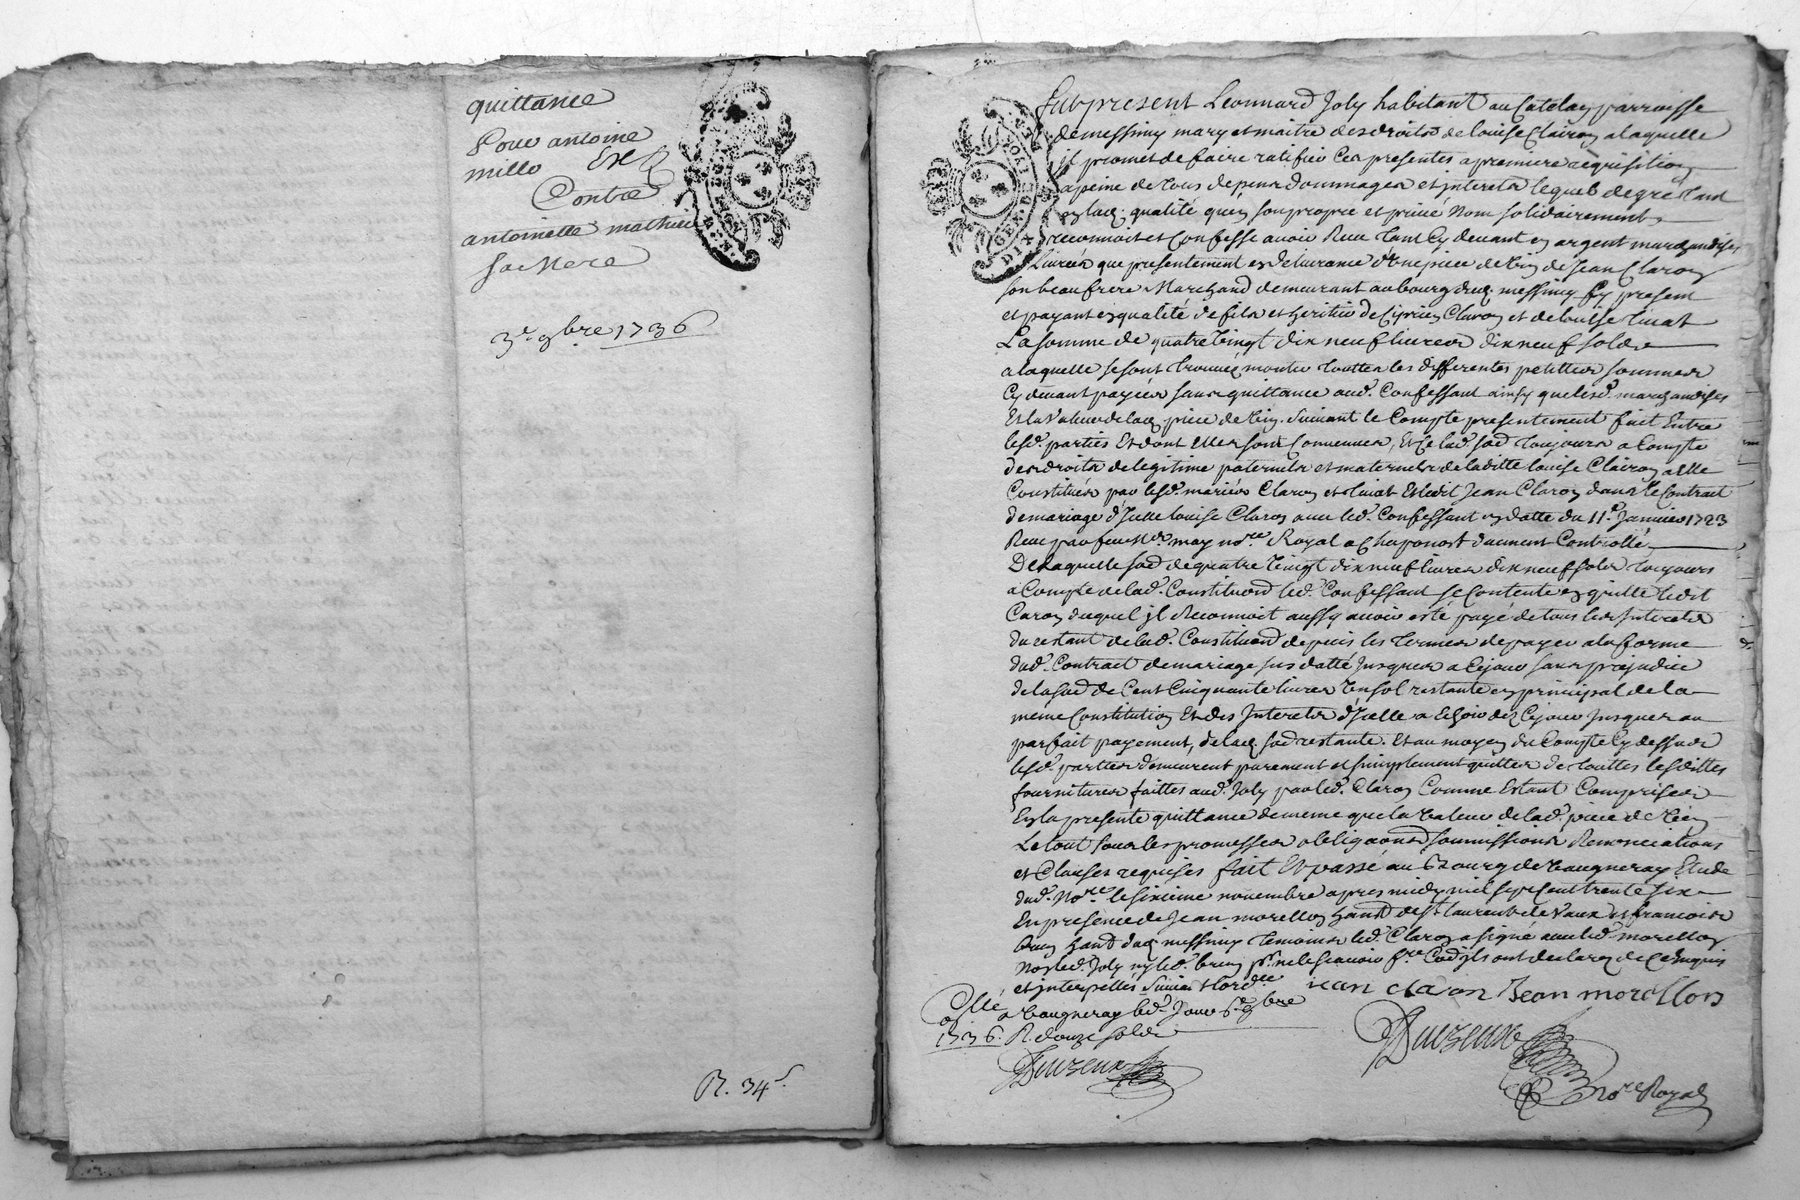 quittance
Pour antoine
millo Exp
Contre
antoinette mathieu
sa Mere
3.e 9bre 1736
R. 34 s.
GEN. DE LYON
Fut present Leonnard Joly habitant au Catelan parroisse
de messimy mary et maitre des droits de louise Clairon a laquelle
jl promet de faire ratifier Ces presentes a premiere requisition
a peine de tous depens dommages et interets lequel de gré tant
en lad. qualité qu'en son propre et privé Nom solidairement
reconnoit et Confesse avoir Receu tant Cy devant en argent marchandises
Livrées que presentement en delivrance d'Une piece de Vin de Jean Claron
son beau frere Marchand demeurant au bourg dud. messimy Cy present
et payant en qualité de fils et heritier de Ciprien Claron et de louise
La somme de quatre Vingt dix neuf livres dix neuf sols
a laquelle se sont trouvés monter touttes les differentes petittes sommes
Cy devant payées sans quittance aud. Confessant ainsy que lesd. marchandises
Et la Valeur de lad. piece de Vin. suivant le Compte presentement fait Entre
lesd. parties Et dont Elles sont Convenues, Et Ce lad. som.e toujours a Compte
des droits de legitime paternels et maternels de laditte louise Clairon a Elle
Constitués par lesd. mariés Claron et Et ledit Jean Claron dans le Contrat
de mariage d'Jcelle louise Claron avec led. Confessant en datte du 11.e Janvier 1723
Receu par feu M.e may no.re Royal a Chaponost duement Controllé
De laquelle som.e de quatre Vingt dix neuf livres dix neuf sols toujours
a Compte de lad. Constitu.on led. Confessant se Contente en quitte ledit
Caron duquel jl Reconnoit aussy avoir esté payé de tous les Interets
du restant de lad. Constitu.on depuis les termes de payer a la forme
dud. Contract de mariage sus datté Jusques a Cejour sans prejudice
de la som.e de Cent Cinquante livres Un sol restante en principal de la
meme Constitution Et des Interets d'Jcelle a Echoir des Cejour Jusques au
parfait payement, de lad. som.e restante. Et au moyen du Compte Cy dessus
lesd. parties demeurent purement et simplement quittes de touttes lesdittes
fournitures faittes aud. Joly par led. Claron Comme Estant Comprises
En la presente quittance de meme que la Valeur de lad. piece de Vin
Le tout sous les promesses obligaons soumissions Renonciations
et Clauses requises fait Et passé au Bourg de Vaugneray Etude
dud. No.re le sixieme novembre apres midy mil sept Cent trente six
En presence de Jean morellon hant de st laurent de Vaux et francois
brun hant dud. messimy temoins led. Claron a signé avec led. morellon
Non led. Joly ny led. brun p.r ne le scavoir f.re Co.e jls ont declaré de Ce Enquis
et jnterpellés suivant l'ord.ce jean claron Jean morellon
Collé a Vaugneray led. Jour 6.e 9bre
1736. R. douze sols
Duzeux
Duzeux
no.re Royal